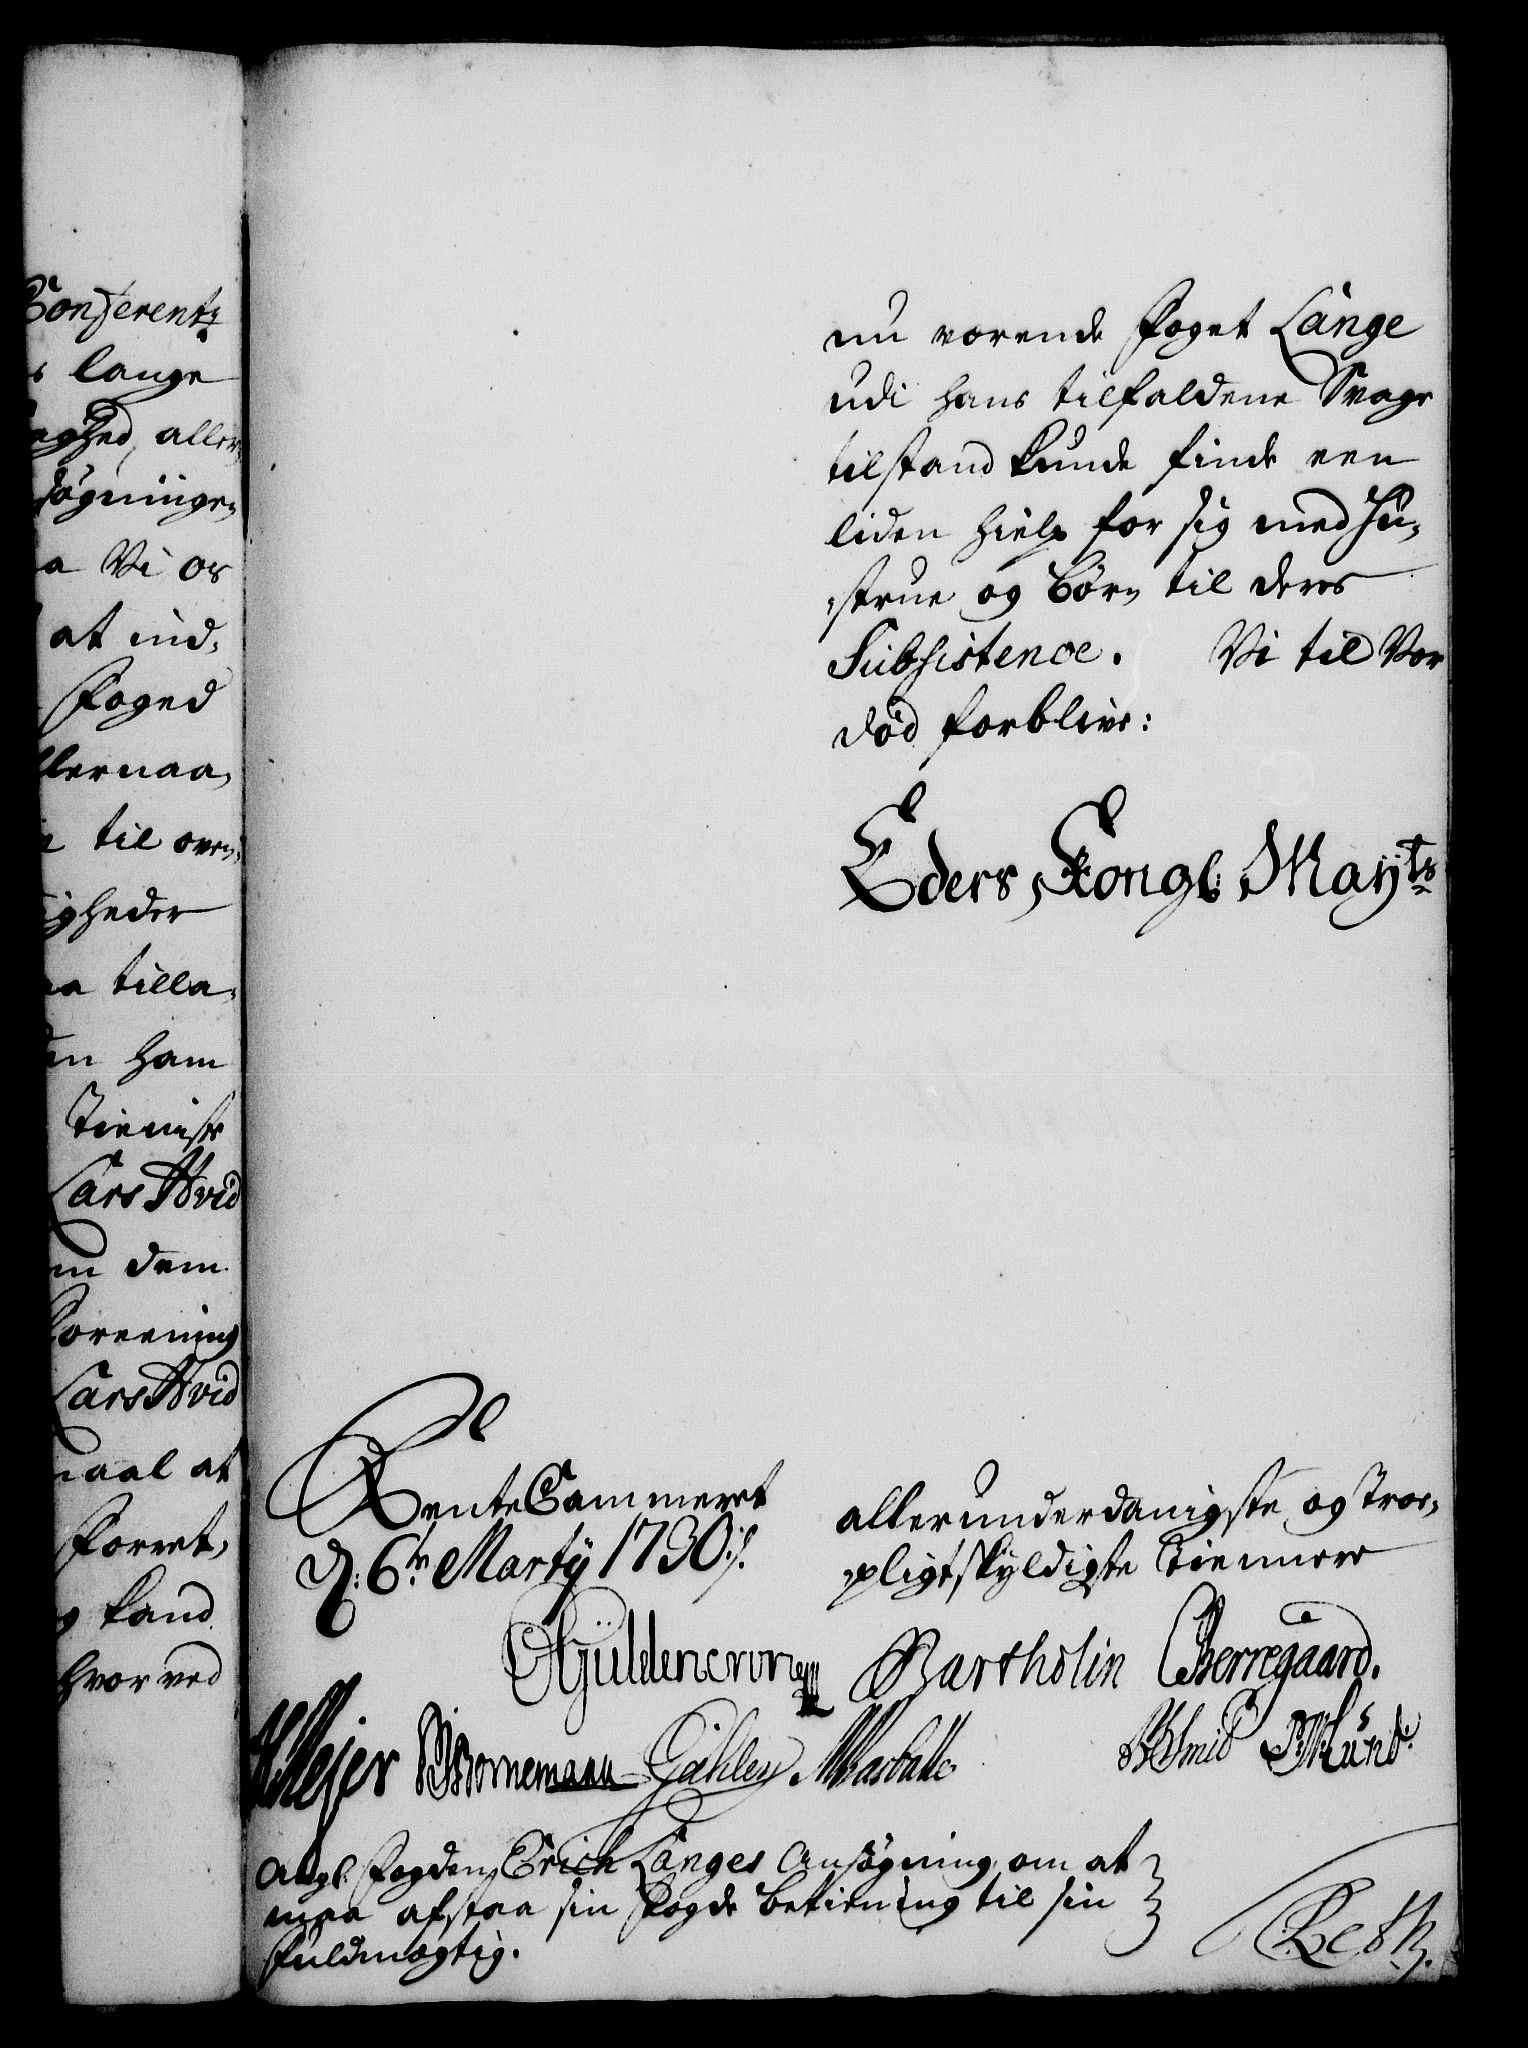 Conferentz
lange
eghed, aller,
søgninge,
a Vi os
at ind,
Foged
llernaa,
til oven,
igheder
aa tilla,
en ham
Tieniste
Lars Hvid
m dem
Foreening
Lars Hvid
maal at
Forret,
g kand
hvorved
nu værende Foget Lange
udi hans tilfaldene Svage
tilstand kunde finde een
liden hielp for sig med Hu,
,strue og Børn til deres
Subsistence. Vi til Vor
død forblive:
Eders Kongl: Mayts
Rente Cammeret
d: 6te Marty 1730:/.
allerunderdanigste og Troe,
pligtskyldigste Tiennere
Güldencrone Bartholin CBerregaard.
Meyer Bornemann Gähler
P:M:Lund.
angl: Fogden, Erich Langes Ansøgning om at
maa afstaa sin Fogde betiening til sin
Fuldmægtig.